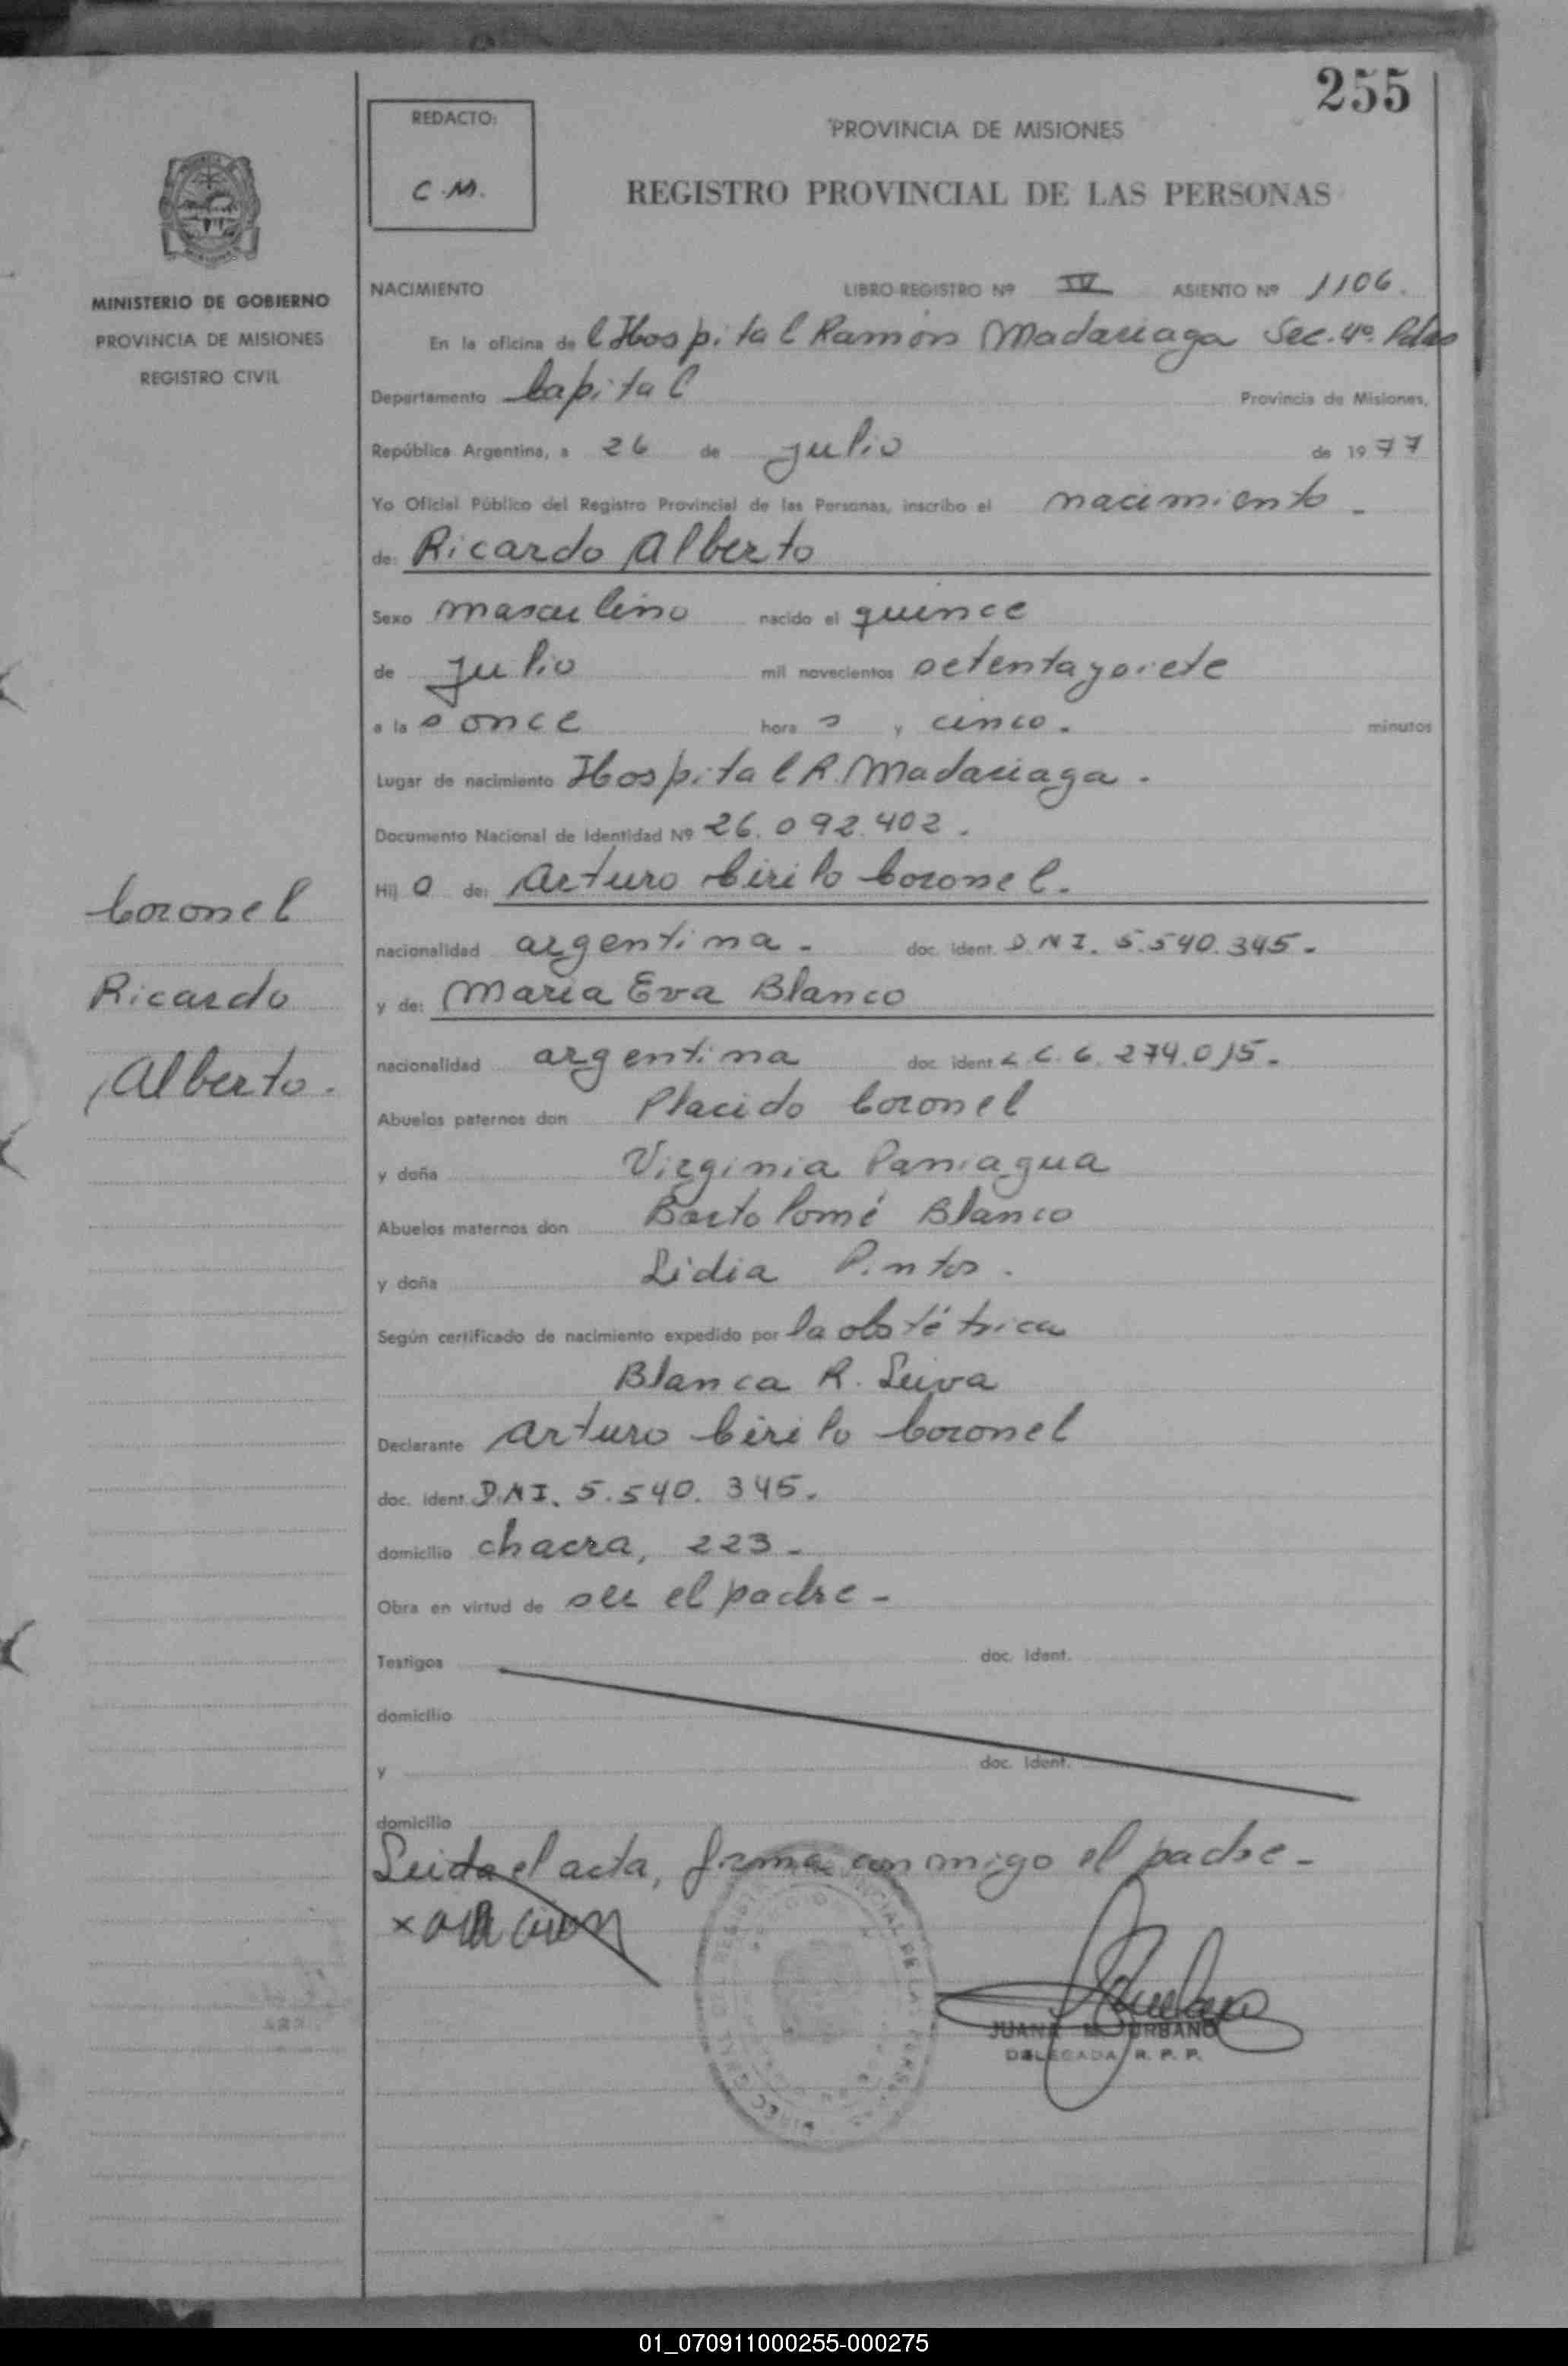 255
REDACTO:
C.M.
PROVINCIA DE MISIONES
REGISTRO PROVINCIAL DE LAS PERSONAS
MINISTERIO DE GOBIERNO
PROVINCIA DE MISIONES
REGISTRO CIVIL
NACIMIENTO LIBRO-REGISTRO Nº IV ASIENTO Nº 1106.
En la oficina del Hospital Ramón Madariaga Sec. 4º. Pdas
Departamento Capital Provincia de Misiones,
República Argentina, a 26 de julio de 1977
Yo Oficial Público del Registro Provincial de las Personas, inscribo el nacimiento -
de: Ricardo Alberto
Sexo masculino nacido el quince
de julio mil novecientos setenta y siete
a las once horas y cinco. minutos
Lugar de nacimiento Hospital R. Madariaga.
Documento Nacional de Identidad Nº 26.092.402.
Hijo de: Arturo Cirilo Coronel.
nacionalidad argentina. doc. ident. D.N.I. 5.540.345.
y de: Maria Eva Blanco
nacionalidad argentina doc. ident. L.C. 6.274.015.
Abuelos paternos don Placido Coronel
y doña Virginia Paniagua
Abuelos maternos don Bartolomé Blanco
y doña Lidia Pintos.
Según certificado de nacimiento expedido por la obstétrica
Blanca R. Leiva
Declarante Arturo Cirilo Coronel
doc. ident. D.N.I. 5.540.345.
domicilio chacra, 223.
Obra en virtud de ser el padre -
Testigos doc. ident.
domicilio
y doc. ident.
domicilio
Leida el acta, firma conmigo el padre -
JUANA M. URBANO
DELEGADA R. P. P.
Coronel
Ricardo
Alberto.
01_070911000255-000275